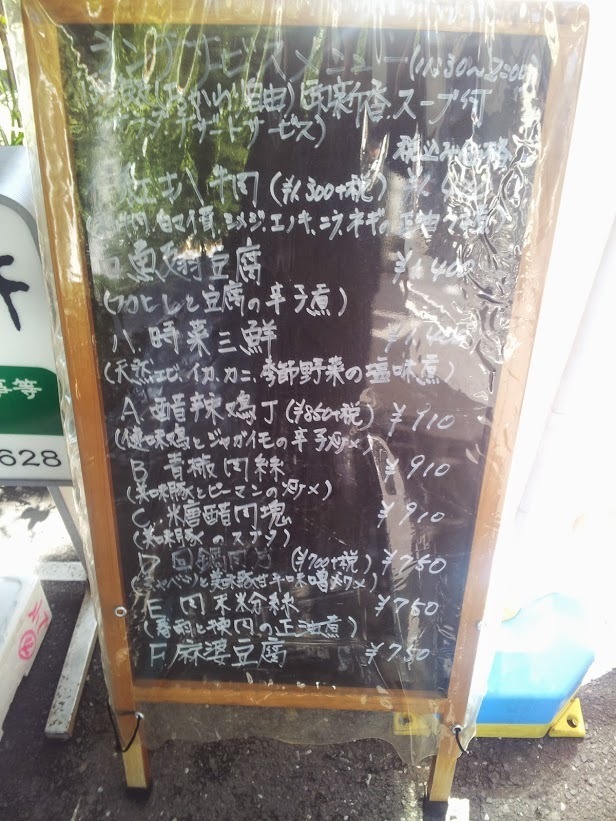 ランチサービスメニュー (11:30~2:00)
自由) 香、スープ付
デザートサービス)
税込み価格
牛肉 (¥1,300+税)
シメジ、エノキ、ニラ、ネギの
魚翅豆腐 ¥1,400
(フカヒレと豆腐の辛子煮)
八 時菜三鮮
(天然エビ、イカ、カニ、季節野菜の塩味煮)
A. 醋辣鶏丁 (¥850+税) ¥910
鶏とジャガイモの辛子炒メ)
B 青椒肉絲 ¥910
(美味豚とピーマンの炒メ)
C. 糖醋肉塊 ¥910
(美味豚のスブタ)
D 回鍋肉片 (¥700+税) ¥750
(きゃべつと美味豚甘辛味噌炒メ)
E 肉末粉絲 ¥750
(春雨と挽肉の正油煮)
F. 麻婆豆腐 ¥750
等
628